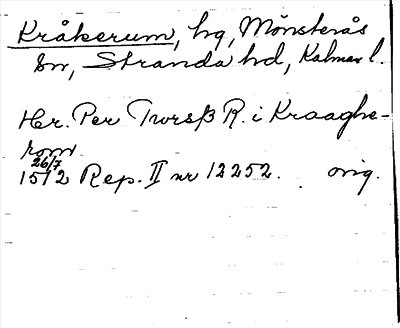 Kråkerum, hg, Mönsterås
sn, Stranda hd, Kalmar l.
Hr. Per Twrsß R. i Kraaghe-
rom
26/7
1512 Rep. II nr 12252. orig.